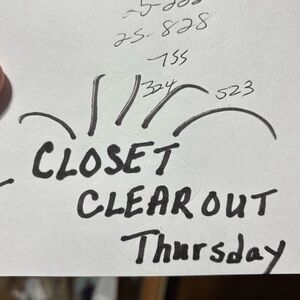 25-828
755
324
523
CLOSET
CLEAR OUT
Thursday